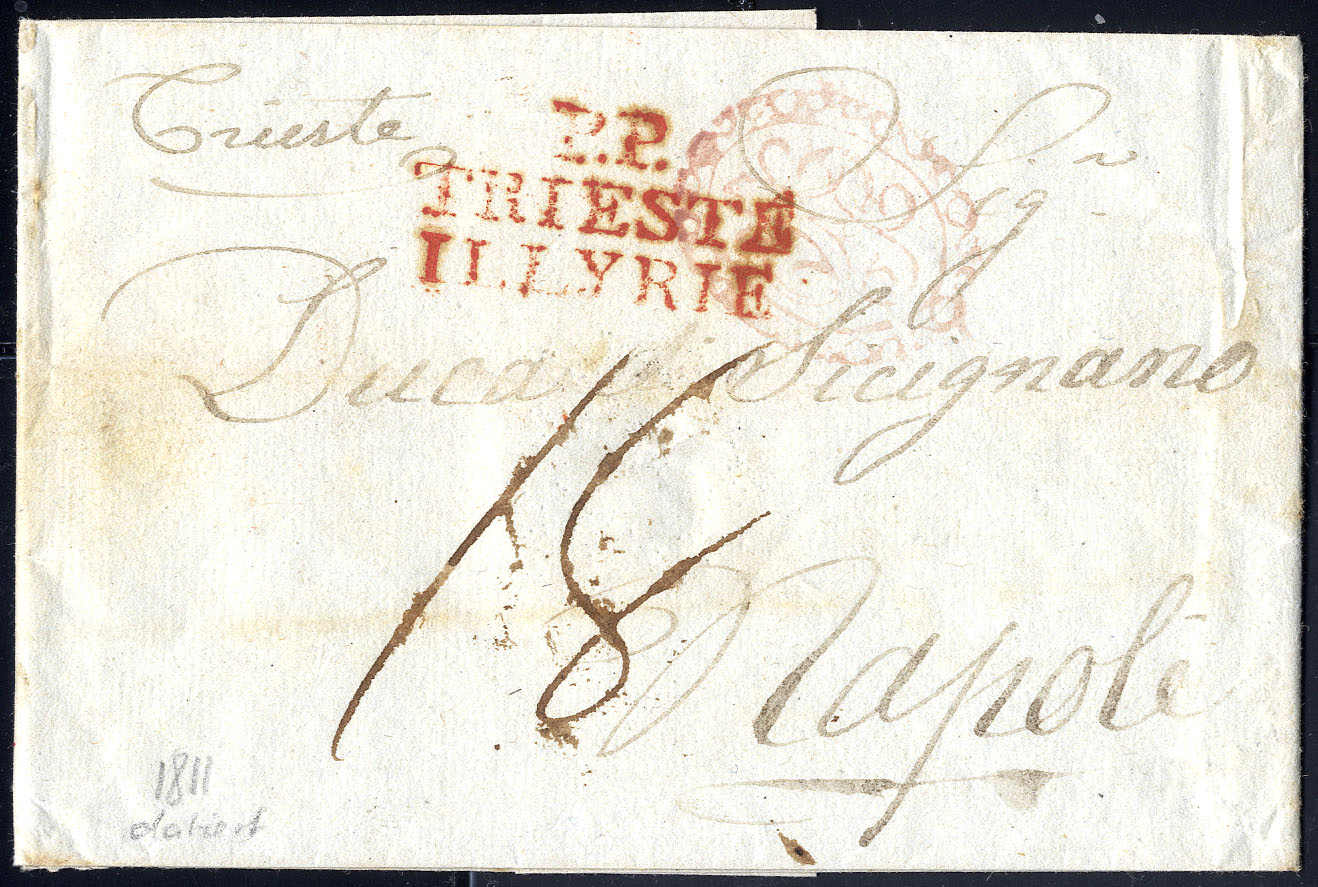 Trieste
P.P.
TRIESTE
ILLYRIE
Sig.r
Duca di Sicignano
18
Napoli
1811
datiert